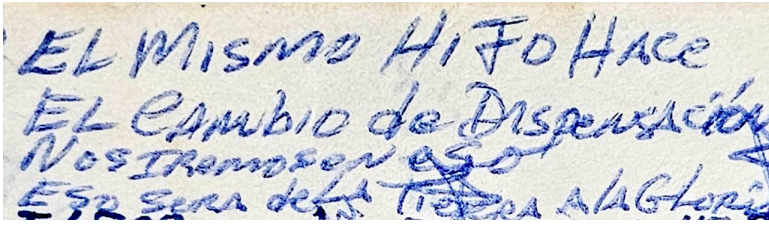 EL MISMO HIJO HACE
EL CAMBIO de DISPENSACIÓN
NOS IREMOS EN eso
ESO SERA de LA TIERRA A lA GLORIA